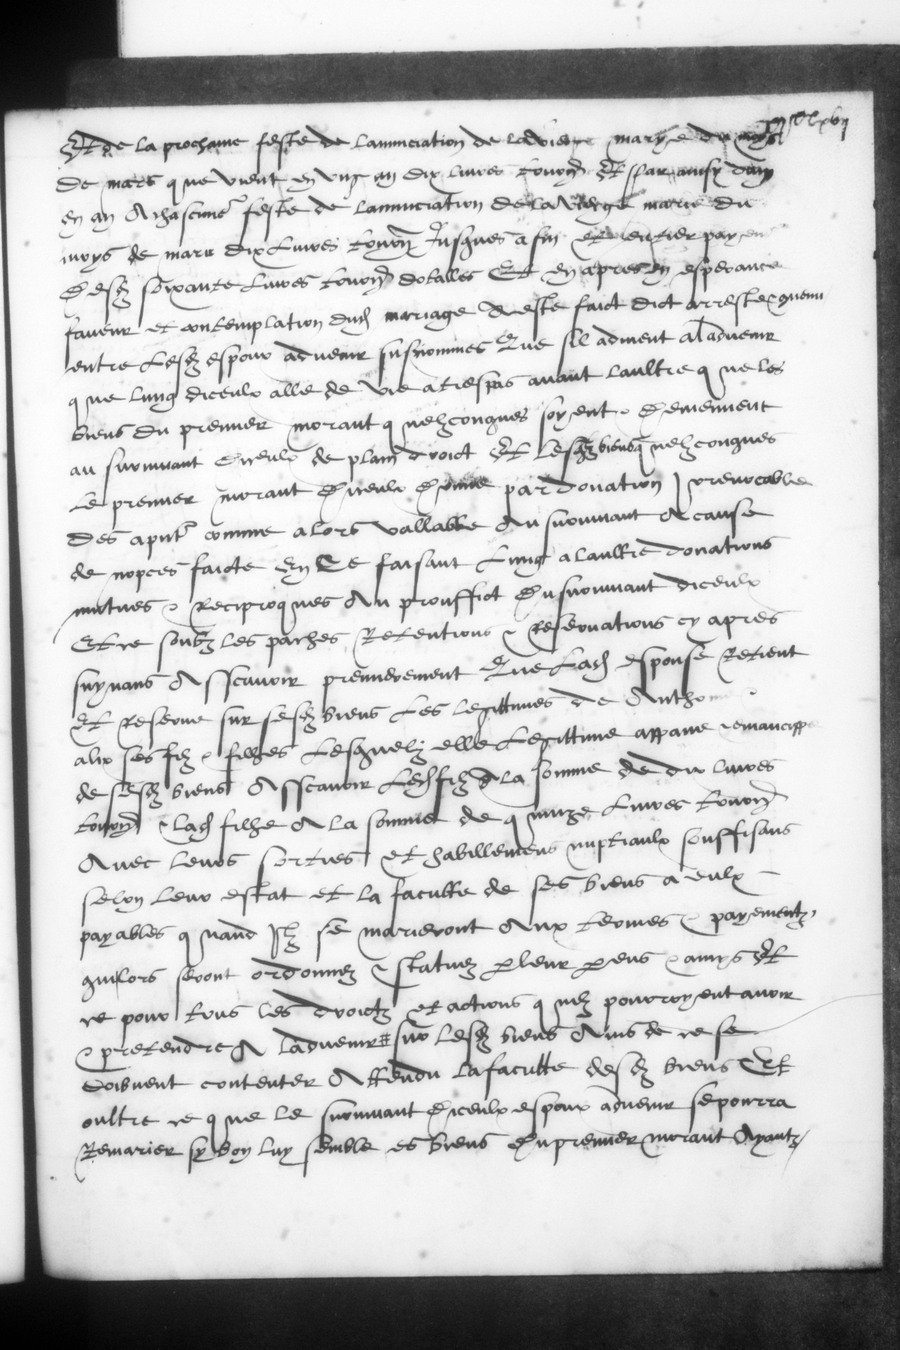 Et de la prochaine feste de lannunciation de la vierge marye du moys
de mars que vient en ung an dix livres tournz Et par ainsi dan
en an a chascune feste de lannunciation de la vierge marie du
moys de mars dix livres tournz Jusques a fin et entier payem
desdz soixante livres tournz dotalles Et en apres en esperance
faveur et contemplation dud mariage A este faict dict arreste convenu
entre lesdz espoux advenir susnommes Que sil advient a ladvenir
que lung diceulx alle de vie a trespas avant laultre que les
biens du premier morant quelzconques soyent & demeurent
au survivant diceulx de plain droict Et lesdz biens quelzconques
le premier morant diceulx donne par donation Irrevocable
des apnt comme alors vallable Au survivant A cause
de nopces faicte En Ce faisant lung a laultre donations
mutues & reciproques Au prouffict du survivant diceulx
Et ce soubz les paches Retentions & reservations cy apres
suyvans Asscavoir premierement Que lad espouse Retient
Et reserve sur sesdz biens Les legittimes de Antho
alix ses filz & filhes Lesquelz elle legittime appane & emancippe
de sesdz biens Asscavoir led filz A la somme de dix livres
tournz & lad filhe A la somme de quinze livres tournz
Avec leurs sorties et habillemens nuptiaulx souffisans
selon leur estat et la faculte de ses biens a eulx
payables quand Ilz se marieront Aux termes & payementz
qui lors seront ordonnez & statuez p leur pens & amys Et
ce pour tous les droictz et actions quilz pourroyent avoir
& pretendre A ladvenir sur lesdz biens Ains de ce se
doibvent contenter Attendu la faculte desdz biens Et
oultre ce que le survivant diceulx espoux advenir se pourra
Remarier sy bon luy semble es biens du premier morant Ayantz